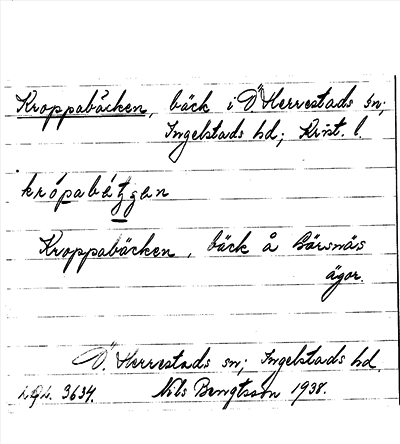 Kroppabäcken, bäck i Ö Herrestads sn;
Ingelstads hd; Krist. l.
Kroppabäcken, bäck å Bärsnäs
ägor.
Ö. Herrestads sn; Ingelstads hd.
3634. Nils Bengtsson 1938.